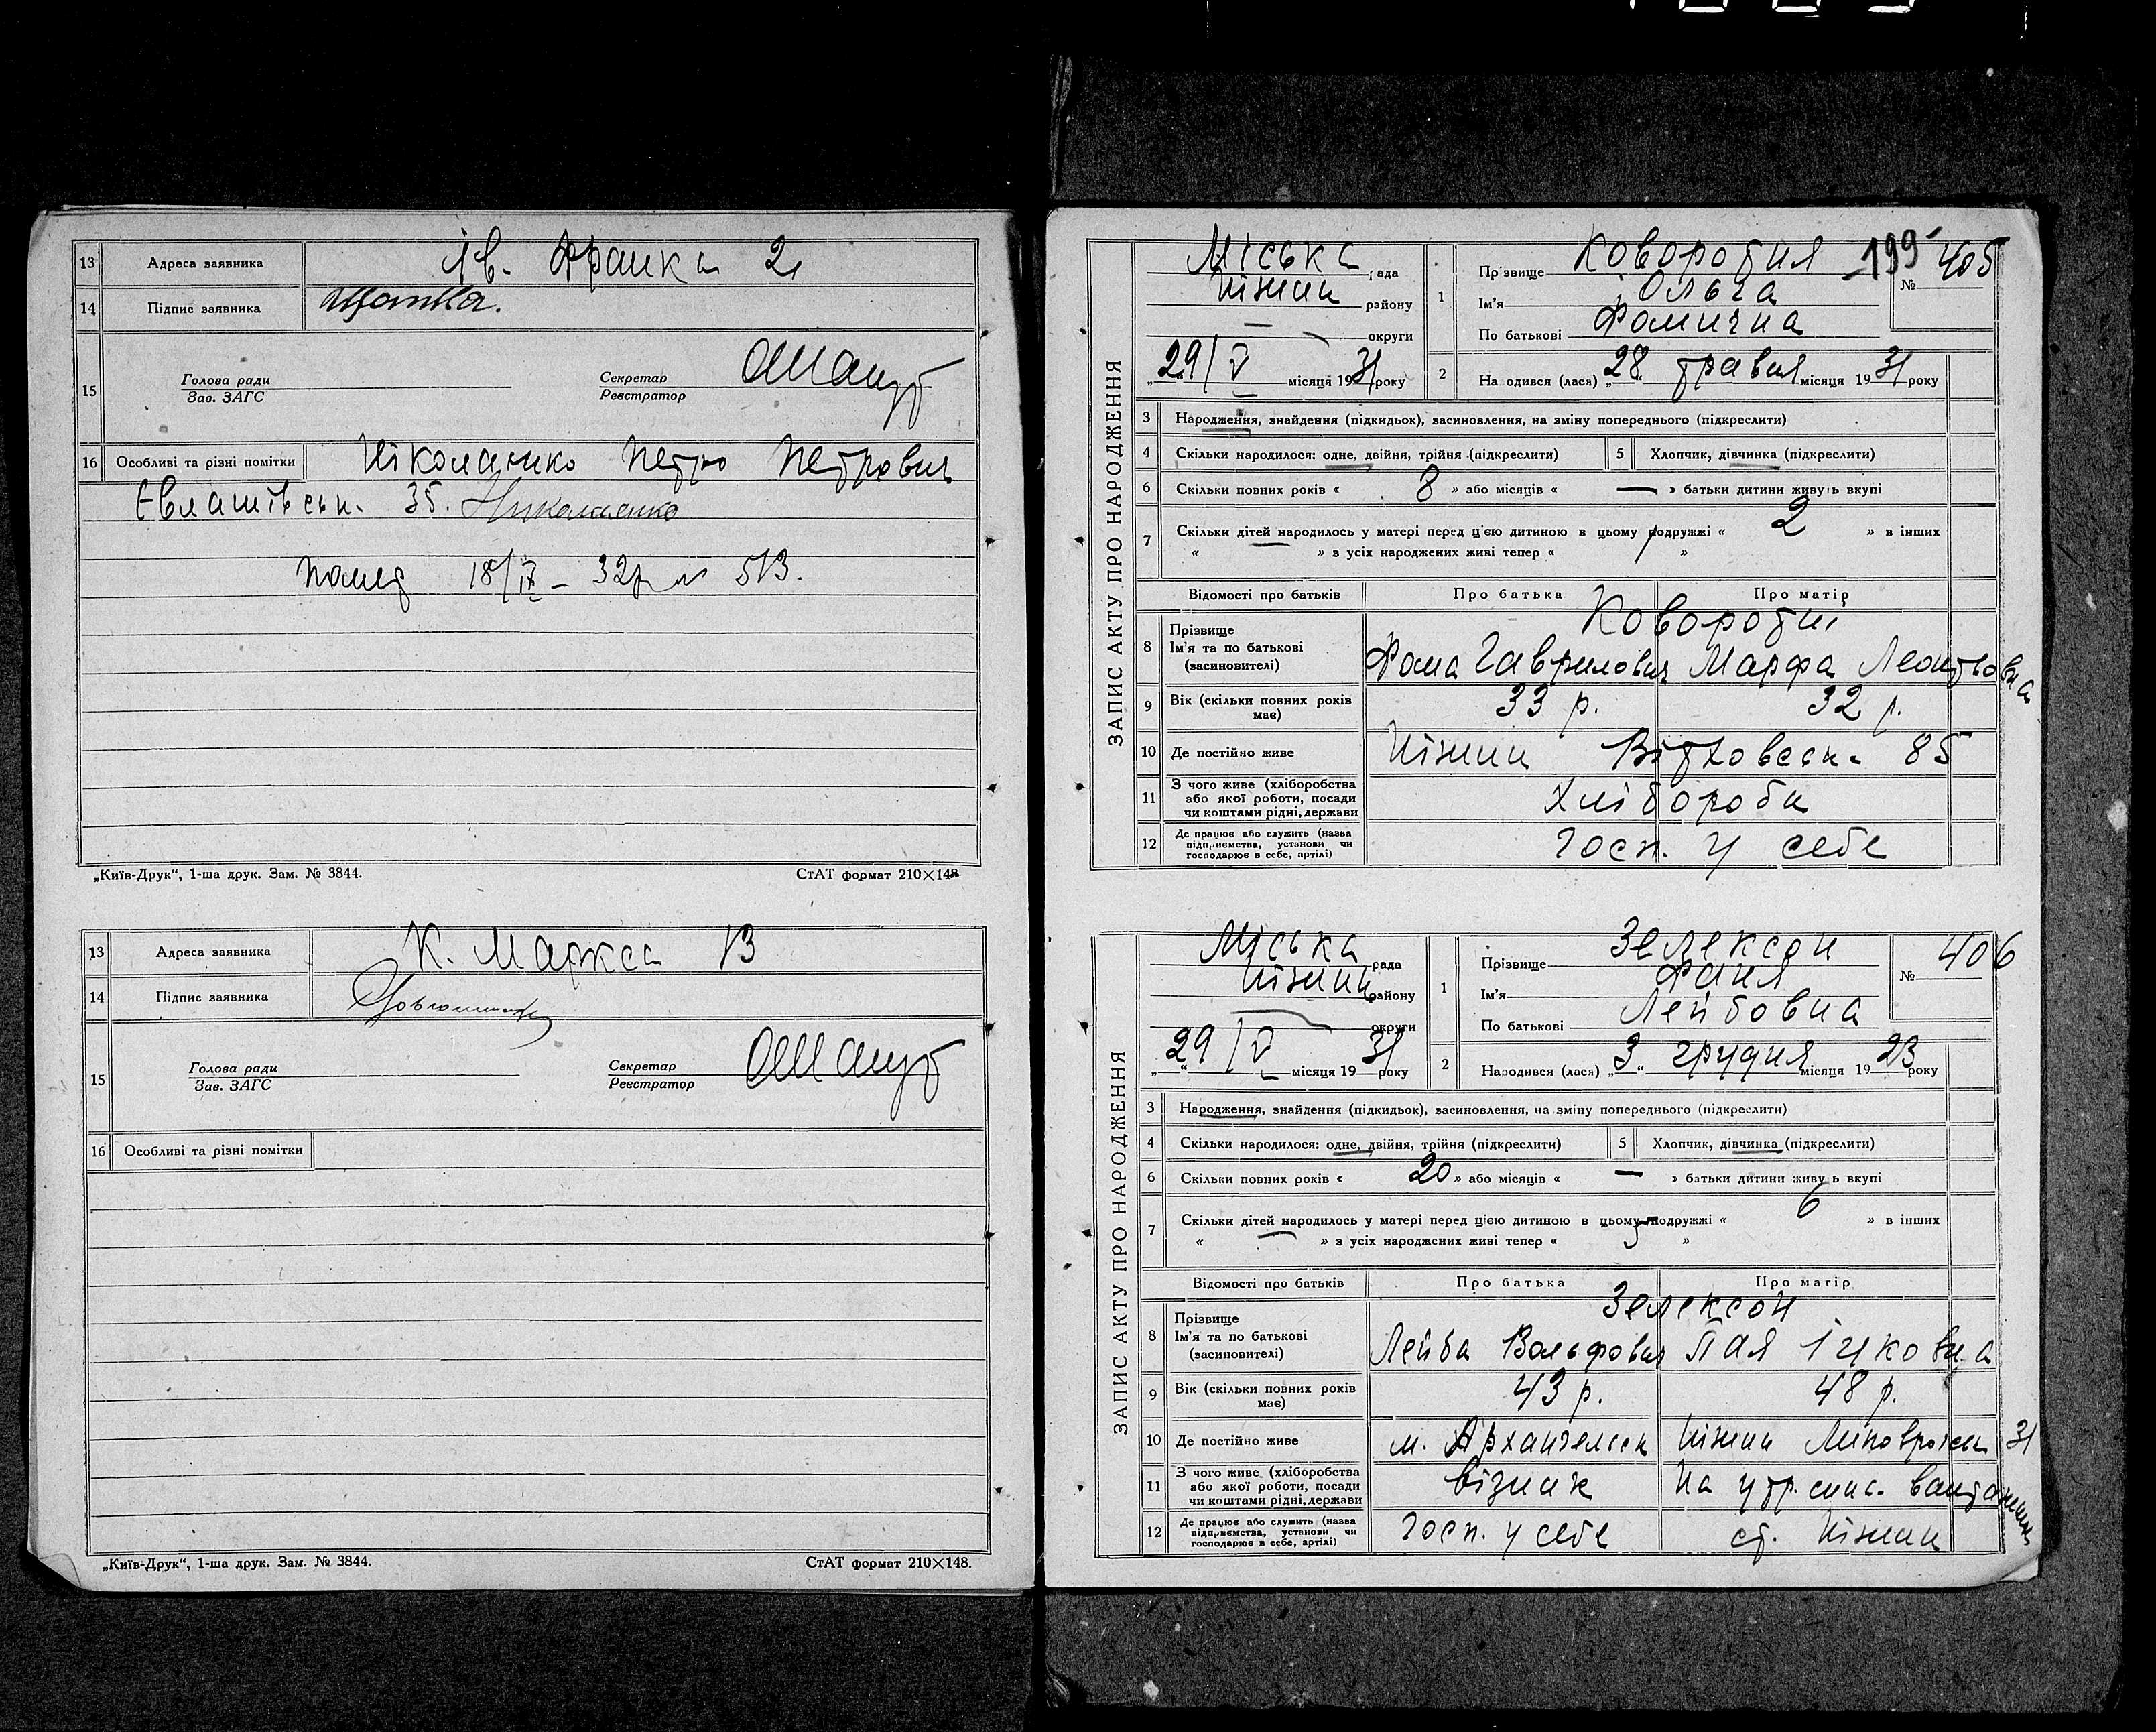 13 Адреса заявника Ів. Франка 2
14 Підпис заявника
15 Голова ради Секретар
Зав. ЗАГС Реєстратор
16 Особливі та різні помітки Ніколаєнко Петро Петрович
Євлашівськ. 35. Николаенко
18/IX – 32р № 513.
„Київ-Друк“, 1-ша друк. Зам. № 3844. СтАТ формат 210×148
13 Адреса заявника К. Маркса 13
14 Підпис заявника
15 Голова ради Секретар
Зав. ЗАГС Реєстратор
16 Особливі та різні помітки
„Київ-Друк“, 1-ша друк. Зам. № 3844. СтАТ формат 210×148.
ЗАПИС АКТУ ПРО НАРОДЖЕННЯ
Міська рада
Ніжин району
— округи
„29/V місяця 1931 року
1 Прізвище Коворотня 199 № 405
Ім'я Ольга
По батькові Фомична
2 Народився (лася) „28“ травня місяця 1931 року
3 Народження, знайдення (підкидьок), засиновлення, на зміну попереднього (підкреслити)
4 Скільки народилося: одне, двійня, трійня (підкреслити) 5 Хлопчик, дівчинка (підкреслити)
6 Скільки повних років « 8 » або місяців « — » батьки дитини живуть вкупі
7 Скільки дітей народилось у матері перед цією дитиною в цьому подружжі « 2 » в інших
« — » з усіх народжених живі тепер « »
Відомості про батьків Про батька Про матір
8 Прізвище Ім'я та по батькові (засиновителі) Коворотні
Фома Гаврилович Марфа Леонтьовна
9 Вік (скільки повних років має) 33 р. 32 р.
10 Де постійно живе Ніжин 85
11 З чого живе (хліборобства або якої роботи, посади чи коштами рідні, держави Хлібороби
12 Де працює або служить (назва підприємства, установи чи господарює в себе, артілі) Госп. у себе
ЗАПИС АКТУ ПРО НАРОДЖЕННЯ
Міська рада
Ніжин району
округи
„29/V місяця 1931 року
1 Прізвище Зелексон № 406
Ім'я Фаня
По батькові Лейбовна
2 Народився (лася) „3“ грудня місяця 1923 року
3 Народження, знайдення (підкидьок), засиновлення, на зміну попереднього (підкреслити)
4 Скільки народилося: одне, двійня, трійня (підкреслити) 5 Хлопчик, дівчинка (підкреслити)
6 Скільки повних років « 20 » або місяців « — » батьки дитини живуть вкупі
7 Скільки дітей народилось у матері перед цією дитиною в цьому подружжі « 6 » в інших
« — » з усіх народжених живі тепер « 5 »
Відомості про батьків Про батька Про матір
8 Прізвище Ім'я та по батькові (засиновителі) Зелексон
Лейба Вольфович Пая Іцковна
9 Вік (скільки повних років має) 43 р. 48 р.
10 Де постійно живе м. Архангельськ Ніжин 31
11 З чого живе (хліборобства або якої роботи, посади чи коштами рідні, держави візник На утр. сина
12 Де працює або служить (назва підприємства, установи чи господарює в себе, артілі) Госп. у себе ст. Ніжин